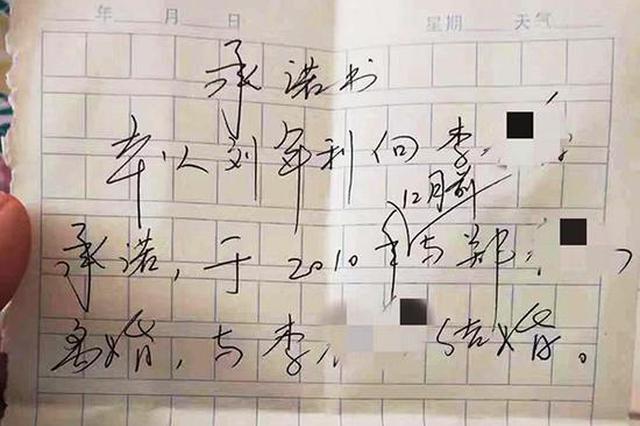 年 月 日 星期 天气
承诺书
本人刘军利向李
12月前
承诺，于2010年与郑，
离婚，与李 结婚。